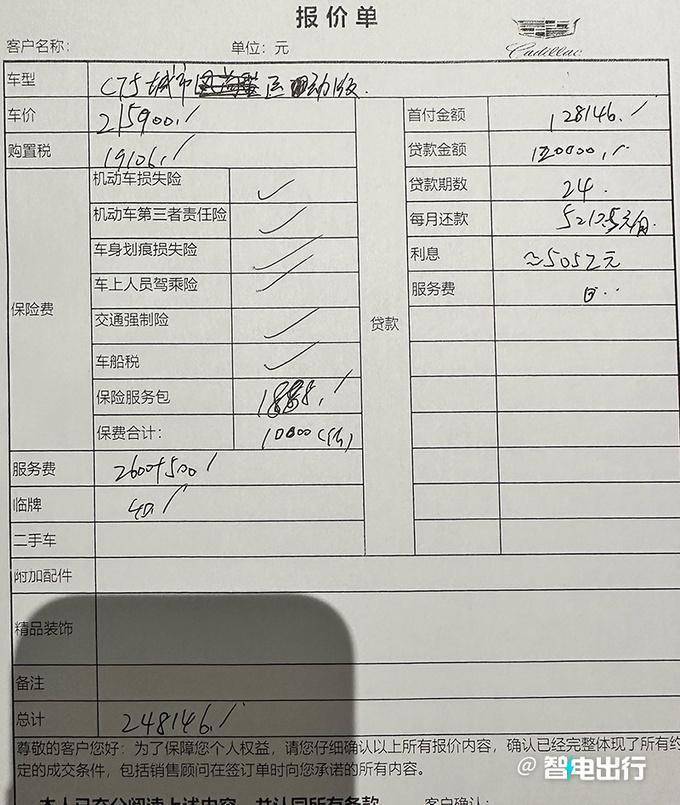 报价单
客户名称： 单位：元
Cadillac
车型 CT5城市 运动版
车价 215900./ 首付金额 128146./
购置税 19106./ 贷款金额 120000./
机动车损失险 贷款期数 24.
机动车第三者责任险 每月还款
车身划痕损失险 利息 ≈5052元
车上人员驾乘险 服务费
保险费 贷款
交通强制险
车船税
保险服务包
保费合计： 10000
服务费 2600+500/
临牌 40./
二手车
附加配件
精品装饰
备注
总计 248146./
尊敬的客户您好：为了保障您个人权益，请您仔细确认以上所有报价内容，确认已经完整体现了所有约
定的成交条件，包括销售顾问在签订单时向您承诺的所有内容。
本人已充分阅读上述内容，并认同所有条款 客户确认：
@智电出行